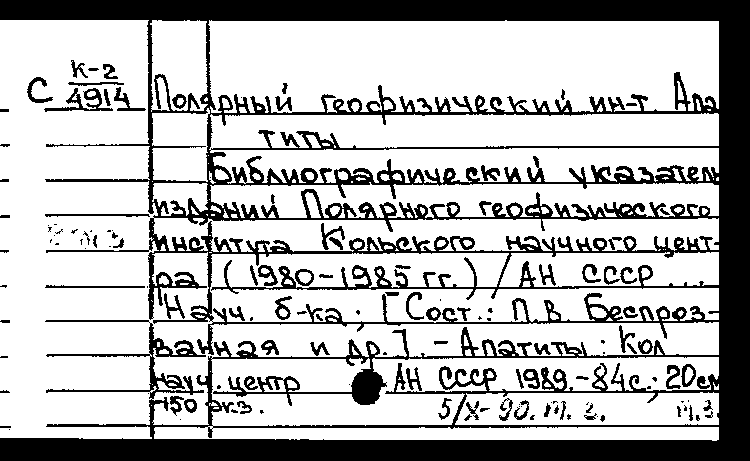 С К-2
4914
Полярный геофизический ин-т. Апа
титы.
Библиографический указатель
изданий Полярного геофизического
института Кольского научного цент-
ра (1980-1985 гг.) / АН СССР ...
Науч. б-ка; [Сост.: П.В. Беспроз-
ванная и др.]. - Апатиты: Кол
науч. центр АН СССР, 1989.-84с.; 20см
-150 экз.
5/X-90. т. 2. т.з.